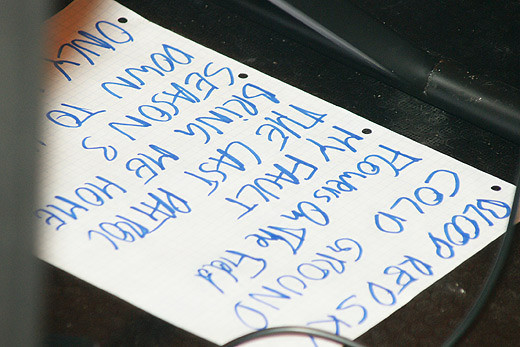 BLOOD RED SKY
COLD GROUND
FLOWERS ON THE
MY FAULT
THE LAST PATROL
BRING ME HOME
SEASONS
DOWN TO
ONLY